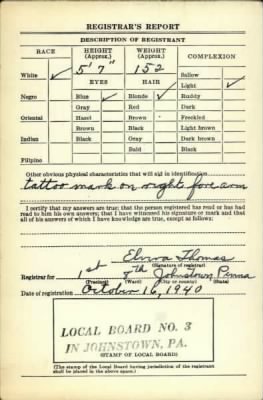 REGISTRAR'S REPORT
DESCRIPTION OF REGISTRANT
RACE HEIGHT (Approx.) WEIGHT (Approx.) COMPLEXION
White ✓ 5' 7" 152 Sallow
Light ✓
EYES HAIR
Negro Blue ✓ Blonde ✓ Ruddy
Gray Red Dark
Oriental Hazel Brown Freckled
Brown Black Light brown
Indian Black Gray Dark brown
Bald Black
Filipino
Other obvious physical characteristics that will aid in identification
tattoo mark on right fore arm
I certify that my answers are true; that the person registered has read or has had
read to him his own answers; that I have witnessed his signature or mark and that
all of his answers of which I have knowledge are true, except as follows:
Thomas
(Signature of registrar)
Registrar for 1st 8th Johnstown Penna
(Precinct) (Ward) (City or county) (State)
Date of registration October 16, 1940
LOCAL BOARD NO. 3
IN JOHNSTOWN, PA.
(STAMP OF LOCAL BOARD)
(The stamp of the Local Board having jurisdiction of the registrant
shall be placed in the above space.)